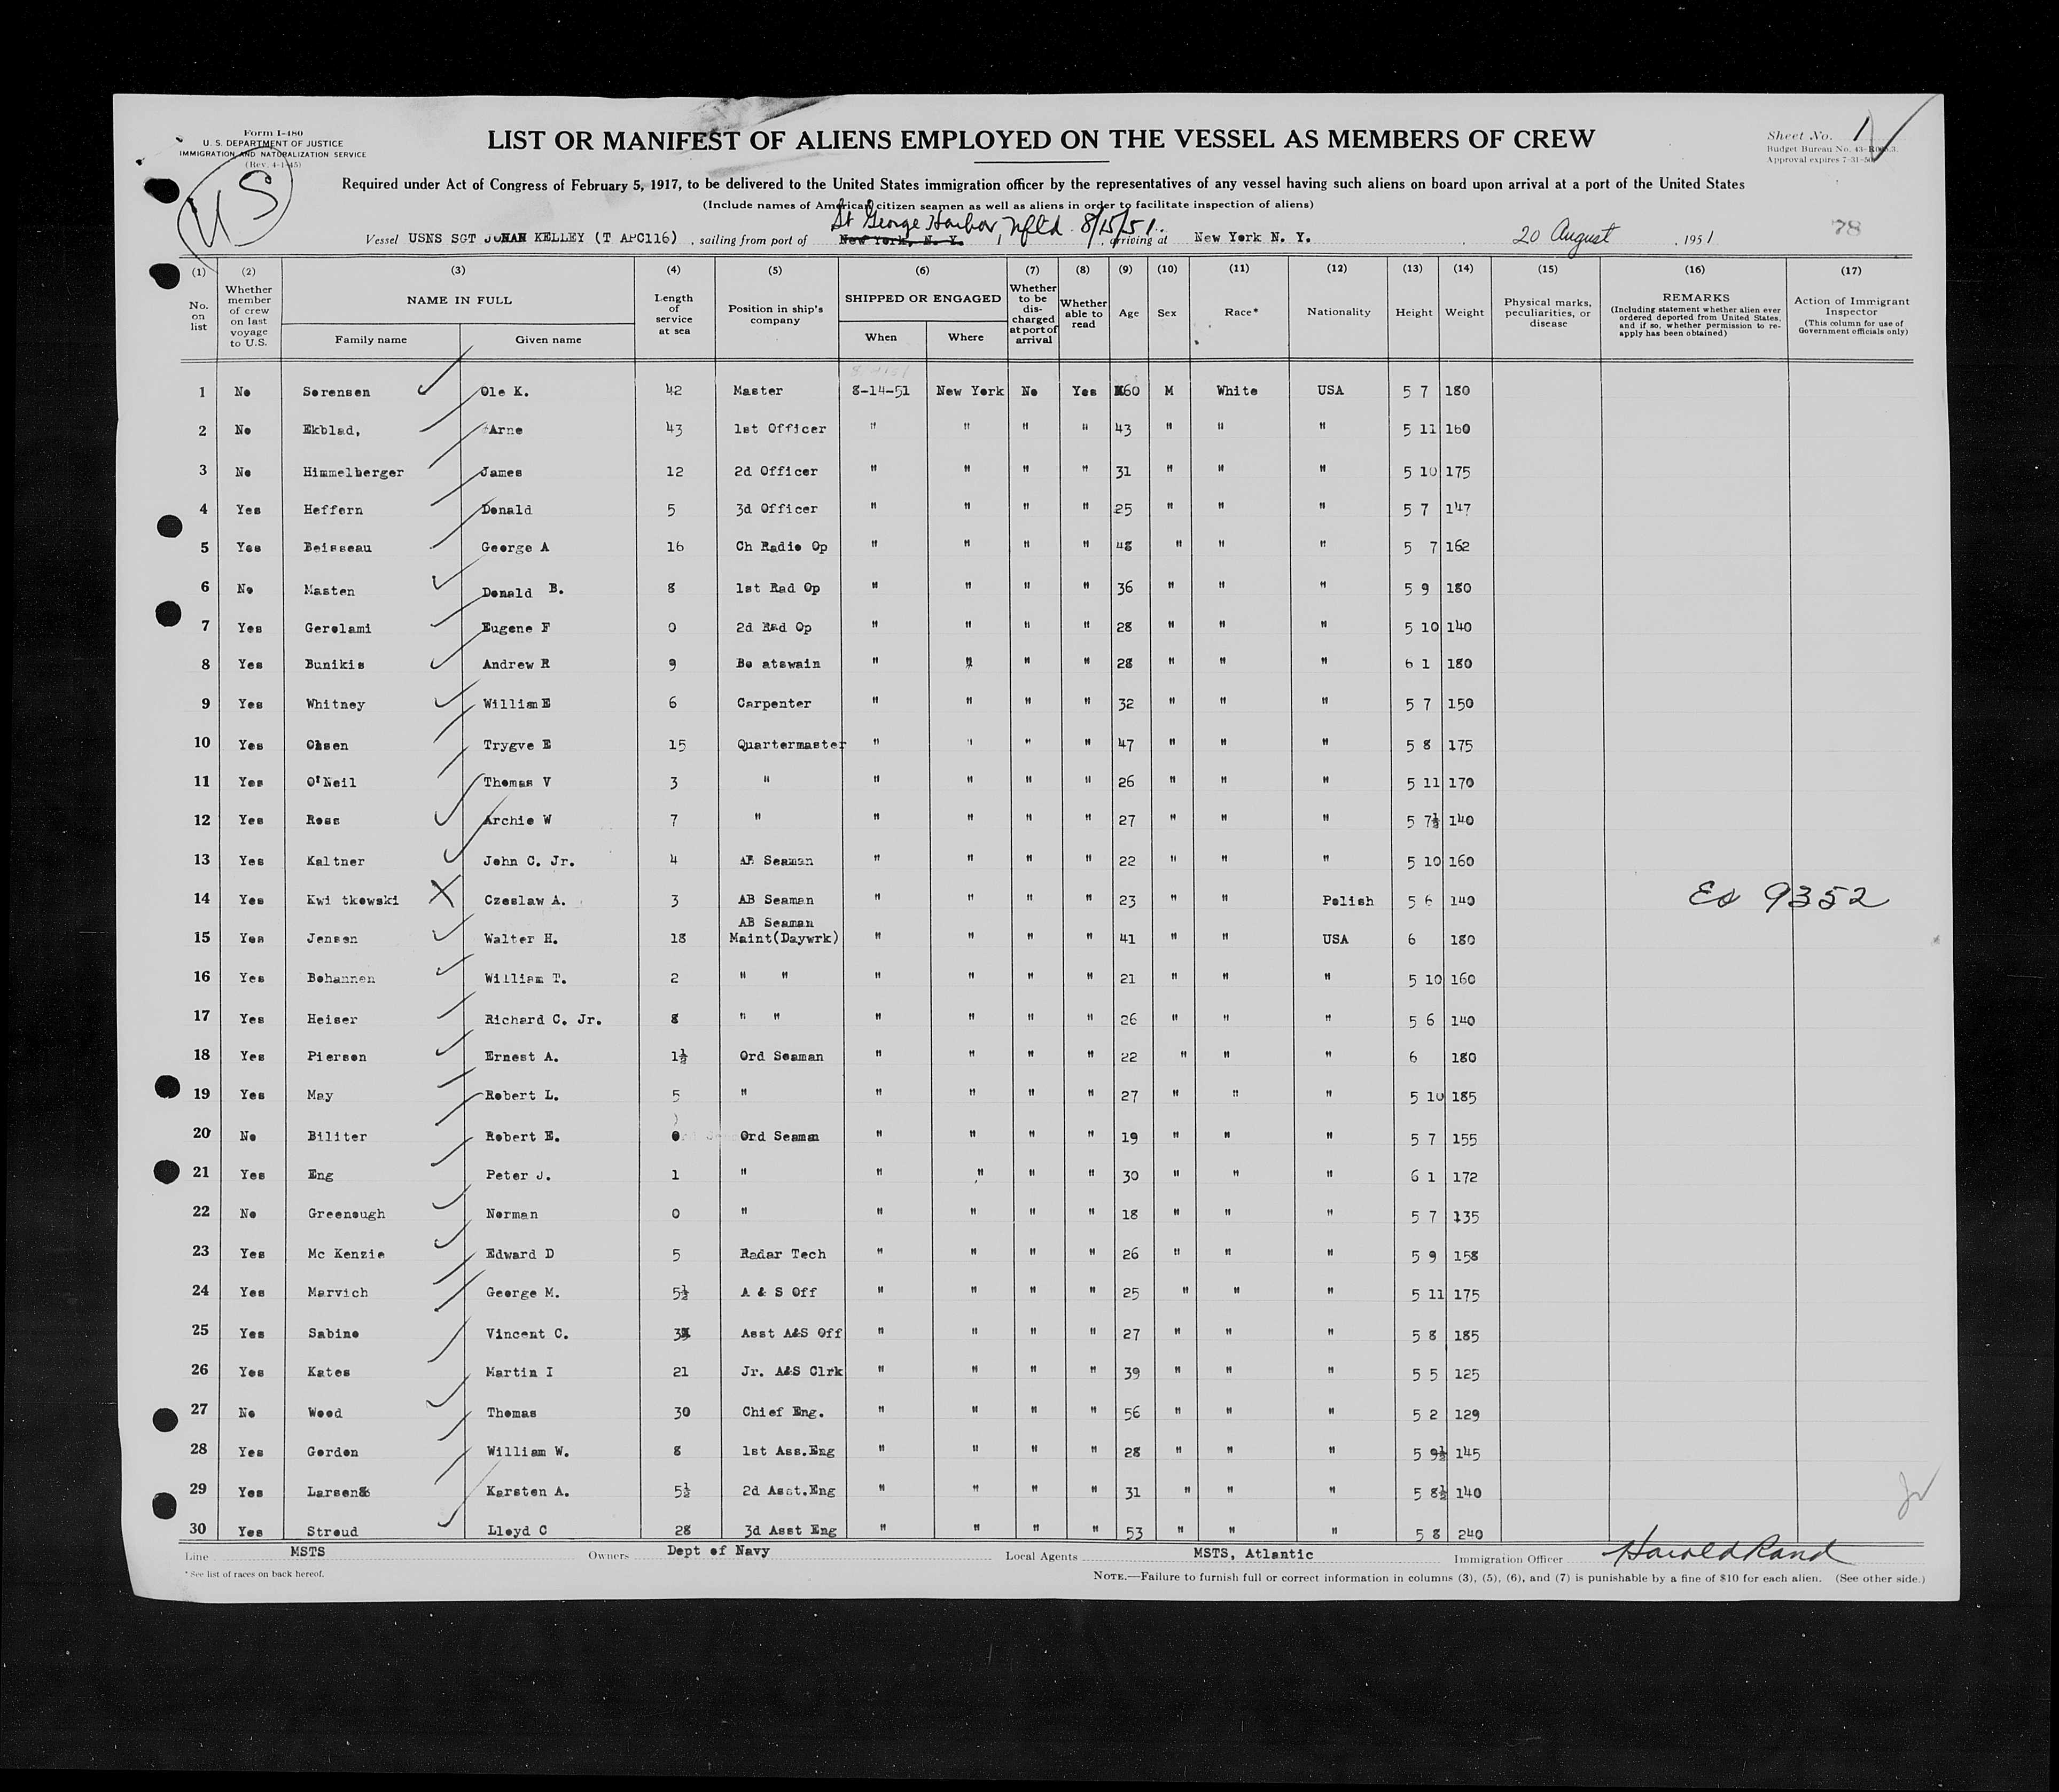 Form I-480
U. S. DEPARTMENT OF JUSTICE
IMMIGRATION AND NATURALIZATION SERVICE
(Rev. 4-1-45)
US
LIST OR MANIFEST OF ALIENS EMPLOYED ON THE VESSEL AS MEMBERS OF CREW
Sheet No. 1
Budget Bureau No. 43-
Approval expires 7-31-50
Required under Act of Congress of February 5, 1917, to be delivered to the United States immigration officer by the representatives of any vessel having such aliens on board upon arrival at a port of the United States
(Include names of American citizen seamen as well as aliens in order to facilitate inspection of aliens)
St George Harbor, Nfld 8/15/51
Vessel USNS SGT JONAH KELLEY (T APC116), sailing from port of New York, N. Y., arriving at New York N. Y. 20 August, 1951
78
(1) (2) (3) (4) (5) (6) (7) (8) (9) (10) (11) (12) (13) (14) (15) (16) (17)
No. on list
Whether member of crew on last voyage to U.S.
NAME IN FULL
Family name
Given name
Length of service at sea
Position in ship's company
SHIPPED OR ENGAGED
When
Where
Whether to be discharged at port of arrival
Whether able to read
Age
Sex
Race*
Nationality
Height
Weight
Physical marks, peculiarities, or disease
REMARKS
(Including statement whether alien ever ordered deported from United States, and if so, whether permission to reapply has been obtained)
Action of Immigrant Inspector
(This column for use of Government officials only)
1 No Sorensen Ole K. 42 Master 8-14-51 New York No Yes 60 M White USA 5 7 180
2 No Ekblad, Arne 43 1st Officer " " " " 43 " " " 5 11 160
3 No Himmelberger James 12 2d Officer " " " " 31 " " " 5 10 175
4 Yes Heffern Donald 5 3d Officer " " " " 25 " " " 5 7 147
5 Yes Boisseau George A 16 Ch Radio Op " " " " 48 " " " 5 7 162
6 No Masten Donald B. 8 1st Rad Op " " " " 36 " " " 5 9 180
7 Yes Gerolami Eugene F 0 2d Rad Op " " " " 28 " " " 5 10 140
8 Yes Bunikis Andrew R 9 Bo atswain " " " " 28 " " " 6 1 180
9 Yes Whitney William E 6 Carpenter " " " " 32 " " " 5 7 150
10 Yes Olsen Trygve E 15 Quartermaster " " " " 47 " " " 5 8 175
11 Yes O'Neil Thomas V 3 " " " " " 26 " " " 5 11 170
12 Yes Ross Archie W 7 " " " " " 27 " " " 5 7½ 140
13 Yes Kaltner John C. Jr. 4 AB Seaman " " " " 22 " " " 5 10 160
14 Yes Kwi tkowski Czeslaw A. 3 AB Seaman " " " " 23 " " Polish 5 6 140 9352
AB Seaman
15 Yes Jensen Walter H. 18 Maint(Daywrk) " " " " 41 " " USA 6 180
16 Yes Bohannon William T. 2 " " " " " " 21 " " " 5 10 160
17 Yes Heiser Richard C. Jr. 8 " " " " " " 26 " " " 5 6 140
18 Yes Pierson Ernest A. 1½ Ord Seaman " " " " 22 " " " 6 180
19 Yes May Robert L. 5 " " " " " 27 " " " 5 10 185
20 No Biliter Robert E. 0 Ord Seaman " " " " 19 " " " 5 7 155
21 Yes Eng Peter J. 1 " " " " " 30 " " " 6 1 172
22 No Greenough Norman 0 " " " " " 18 " " " 5 7 135
23 Yes Mc Kenzie Edward D 5 Radar Tech " " " " 26 " " " 5 9 158
24 Yes Marvich George M. 5½ A & S Off " " " " 25 " " " 5 11 175
25 Yes Sabino Vincent C. 3 Asst A&S Off " " " " 27 " " " 5 8 185
26 Yes Kates Martin I 21 Jr. A&S Clrk " " " " 39 " " " 5 5 125
27 No Wood Thomas 30 Chief Eng. " " " " 56 " " " 5 2 129
28 Yes Gordon William W. 8 1st Ass.Eng " " " " 28 " " " 5 9½ 145
29 Yes Larsen Karsten A. 5½ 2d Asst.Eng " " " " 31 " " " 5 8½ 140
30 Yes Stroud Lloyd C 28 3d Asst Eng " " " " 53 " " " 5 8 240
Line MSTS Owners Dept of Navy Local Agents MSTS, Atlantic Immigration Officer Harold Rand
* See list of races on back hereof.
NOTE.—Failure to furnish full or correct information in columns (3), (5), (6), and (7) is punishable by a fine of $10 for each alien. (See other side.)